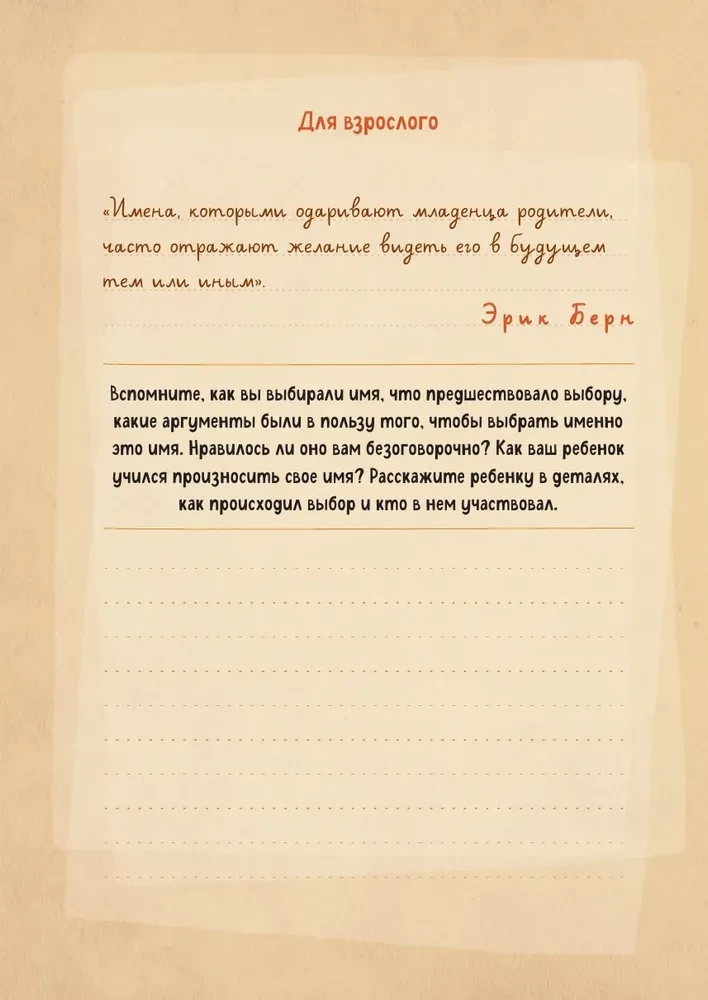 Для взрослого
«Имена, которыми одаривают младенца родители,
часто отражают желание видеть его в будущем
тем или иным».
Эрик Берн
Вспомните, как вы выбирали имя, что предшествовало выбору,
какие аргументы были в пользу того, чтобы выбрать именно
это имя. Нравилось ли оно вам безоговорочно? Как ваш ребенок
учился произносить свое имя? Расскажите ребенку в деталях,
как происходил выбор и кто в нем участвовал.